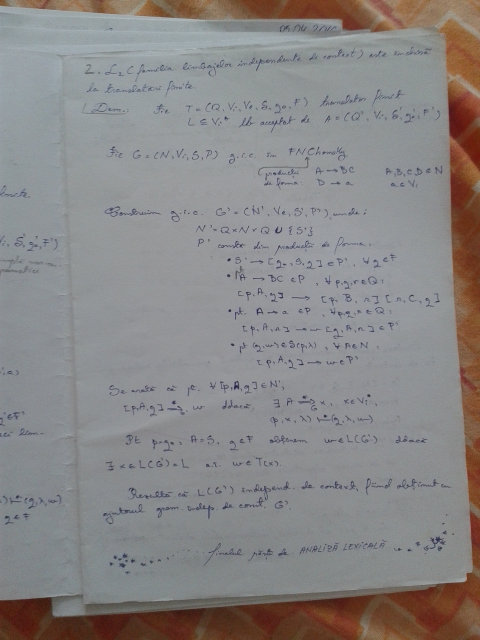 2. L₂ (familia limbajelor independente de context) este închisă
la translatări finite.
Dem: Fie T = (Q, Vi, Vo, S, q₀, F) translator finit
L ⊆ Vi* lb acceptat de A = (Q', Vi, S', q₀', F')
Fie G = (N, Vi, S, P) g.i.c. în FNChomsky
producții A → BC A, B, C, D ∈ N
de forma D → a a ∈ Vi
Construim g.i.c. G' = (N', Vo, S', P'), unde:
N' = Q×N×Q ∪ {S'}
P' constă din producții de forma:
• S' → [q₀, S, q] ∈ P', ∀ q ∈ F
• Pt A → BC ∈ P, ∀ p, q, r ∈ Q:
[p, A, q] → [p, B, r] [r, C, q]
• pt. A → a ∈ P, ∀ p, q, r ∈ Q:
[p, A, r] → w [q, A, r] ∈ P'
• pt (q, w) ∈ S(p, λ), ∀ A ∈ N
[p, A, q] → w ∈ P'
Se arată că pt. ∀ [p, A, q] ∈ N',
[p, A, q] ⇒ w ddacă ∃ A ⇒ x, x ∈ Vi*,
(p, x, λ) ⊢* (q, λ, w)
Pt p = q₀, A = S, q ∈ F obținem w ∈ L(G') ddacă
∃ x ∈ L(G) = L a.î. w ∈ T(x).
Rezultă că L(G') independ. de context, fiind obținut cu
ajutorul gram. indep. de cont. G'.
finalul părții de ANALIZĂ LEXICALĂ